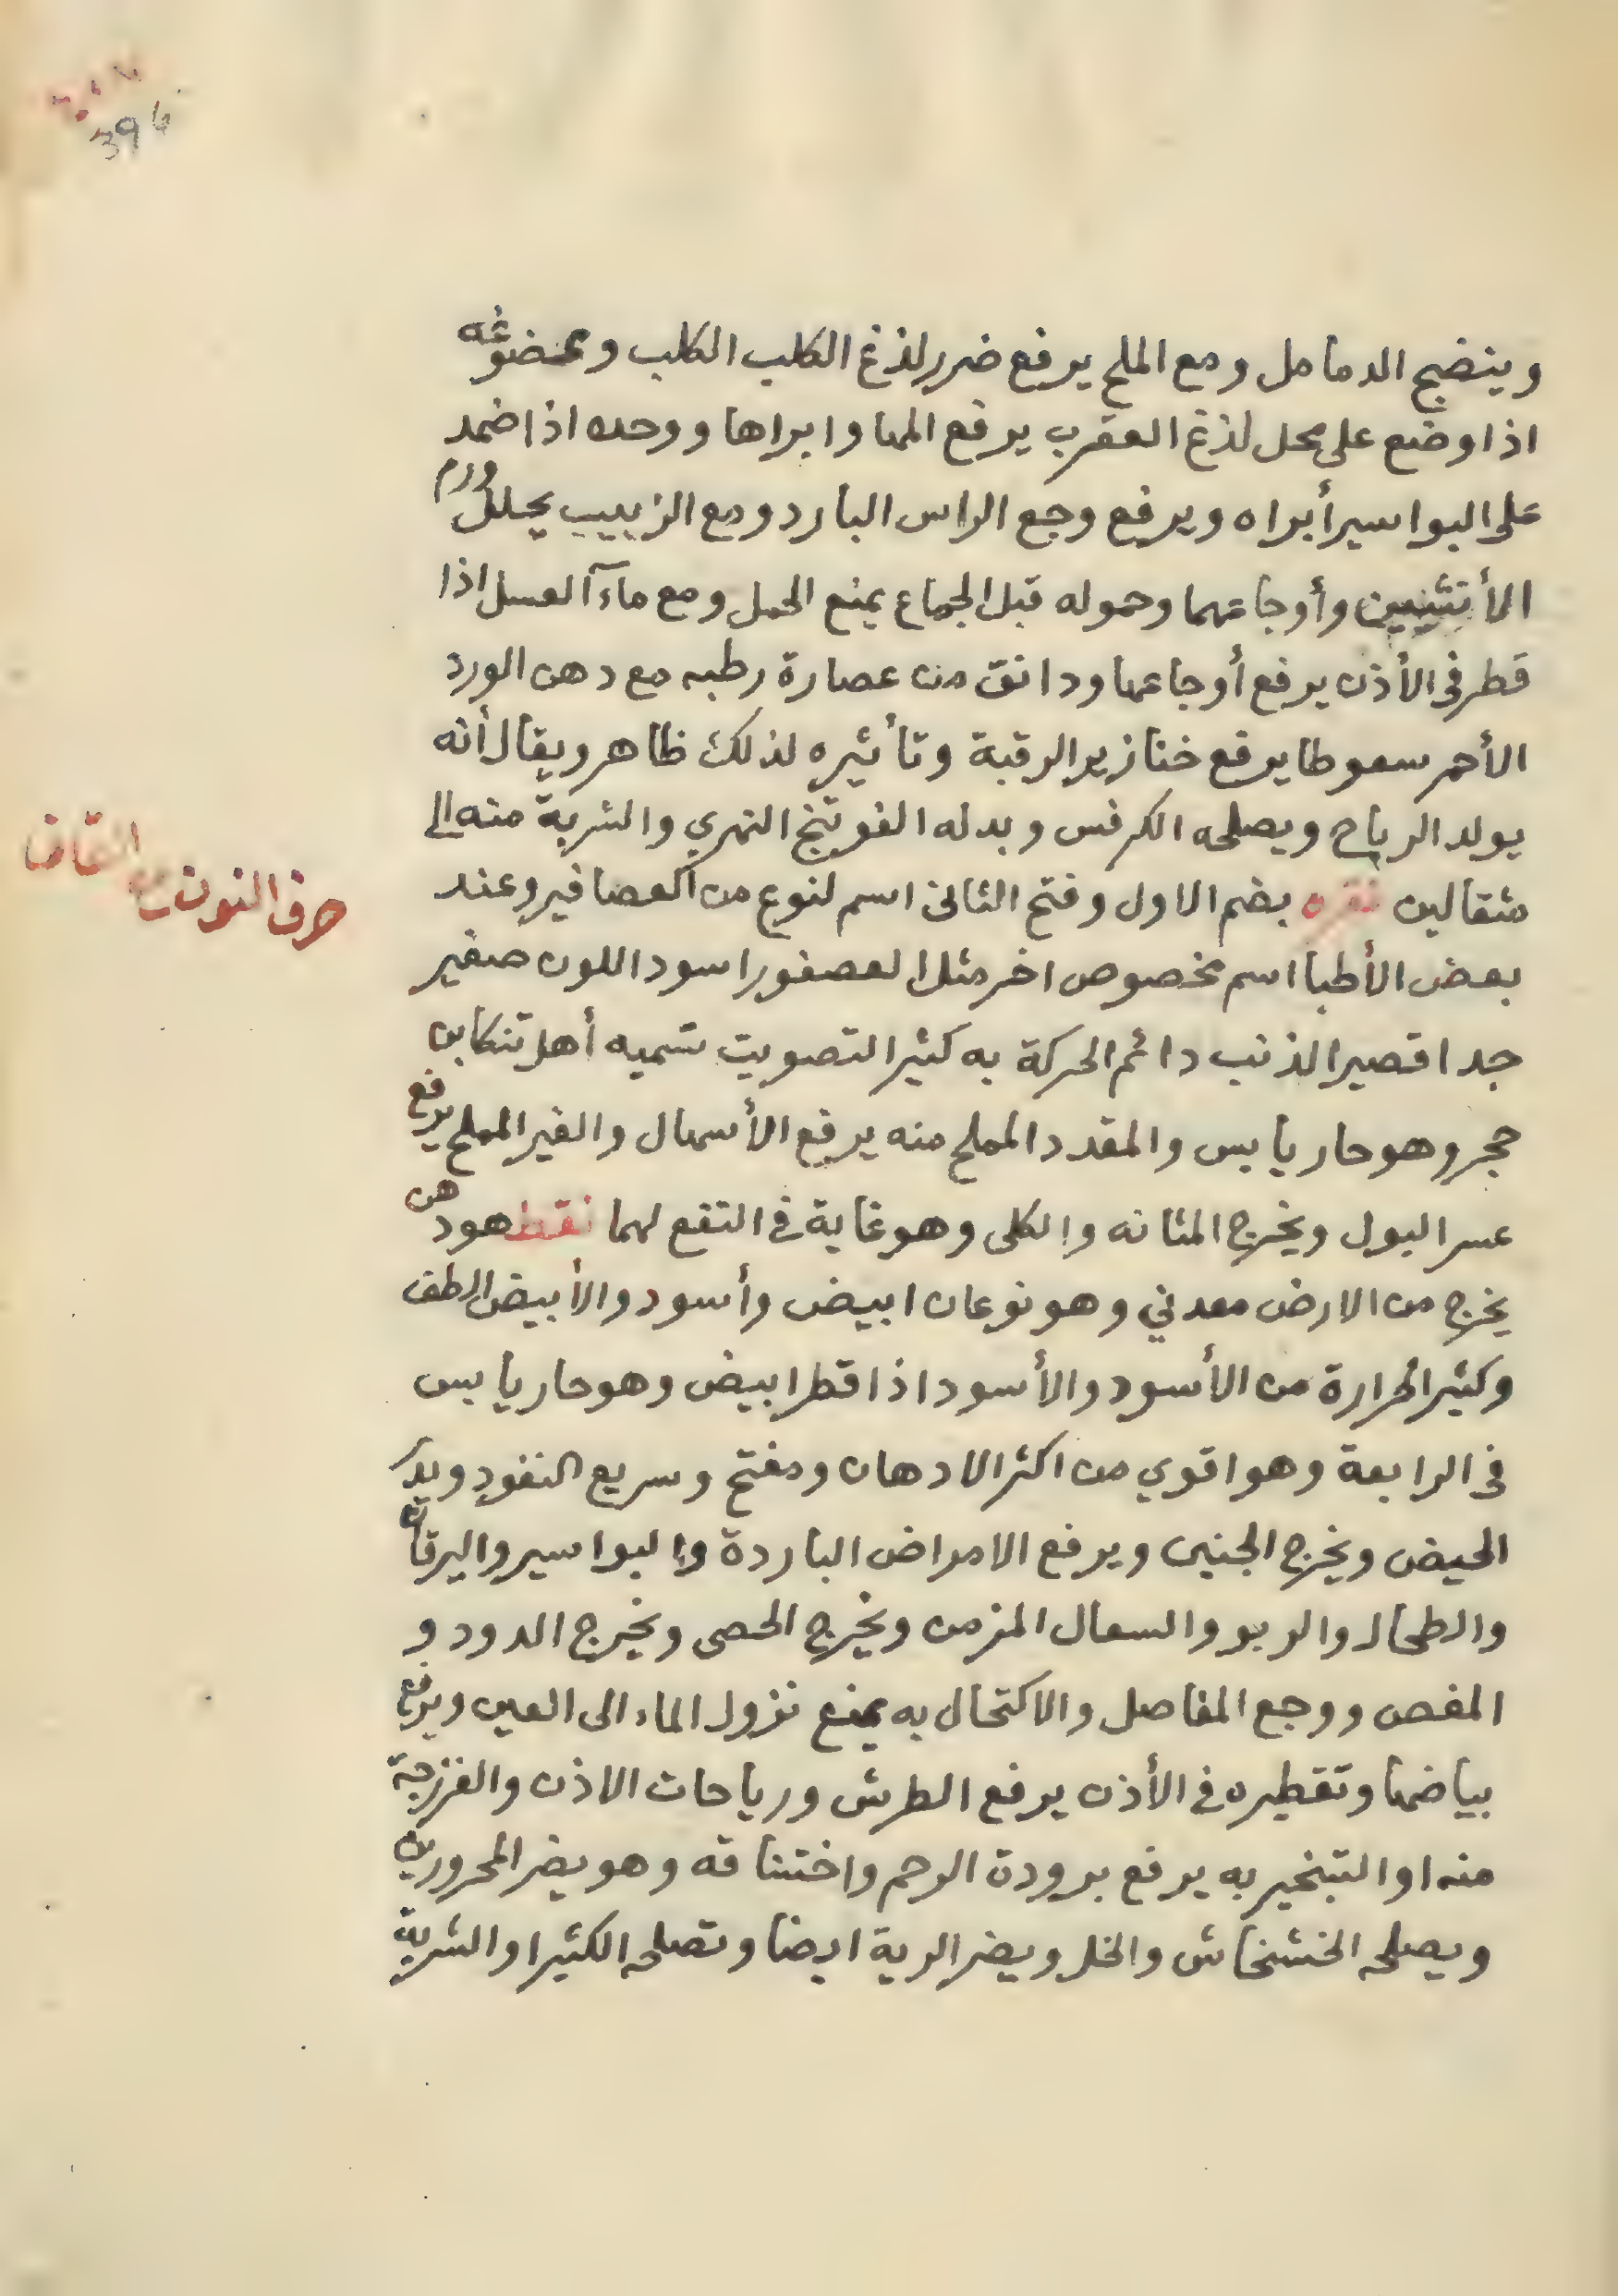 394
وينضج الدمامل ومع الملح يرفع ضرر لذغ الكلب الكلب وعضوضه
اذا وضع على محل لذغ العقرب يرفع المها وابراها ووحده اذا ضمد
على البواسير أبراه ويرفع وجع الراس البارد ومع الزبيب يحلل ورم
الأنثيين وأوجاعهما وحموله قبل الجماع يمنع الحمل ومع مآء العسل اذا
قطر فى الأذن يرفع أوجاعها ودانق من عصارة رطبه مع دهن الورد
الأحمر سعوطا يرفع خنازير الرقبة وتأثيره لذلك ظاهر ويقال أنه
يولد الرياح ويصلحه الكرفس وبدله الفوتنج النهري والشربة منه الى
مثقالين نقره بضم الاول وفتح الثانى اسم لنوع من العصافير وعند
بعض الأطبا اسم مخصوص اخر مثل العصفور اسود اللون صغير
جدا قصير الذنب دائم الحركة به كثير التصويت تسميه أهل تنكابن
حرف النون مع القاف
حجر وهو حار يابس والمقدد المملح منه يرفع الأسهال والغير المملح يرفع
عسر البول ويخرج المثانه والكلى وهو غاية في النفع لهما نفط هو دهن
يخرج من الارض معدني وهو نوعان ابيض وأسود والأبيض الطف
وكثير الحرارة من الأسود والأسود اذا قطر ابيض وهو حار يابس
فى الرابعة وهو اقوي من اكثر الادهان ومفتح وسريع النفود ويدر
الحيض ويخرج الجنين ويرفع الامراض الباردة والبواسير واليرقان
والطحال والربو والسعال المزمن ويخرج الحصى ويخرج الدود و
المغص ووجع المفاصل والاكتحال به يمنع نزول الماء الى العين ويرفع
بياضها وتقطيره في الأذن يرفع الطرش ورياحات الاذن والفرزجة
منه او التبخير به يرفع برودة الرحم واختناقه وهو يضر المحرورين
ويصلحه الخشخاش والخل ويضر الرية ايضا وتصلحه الكثيرا والشربة